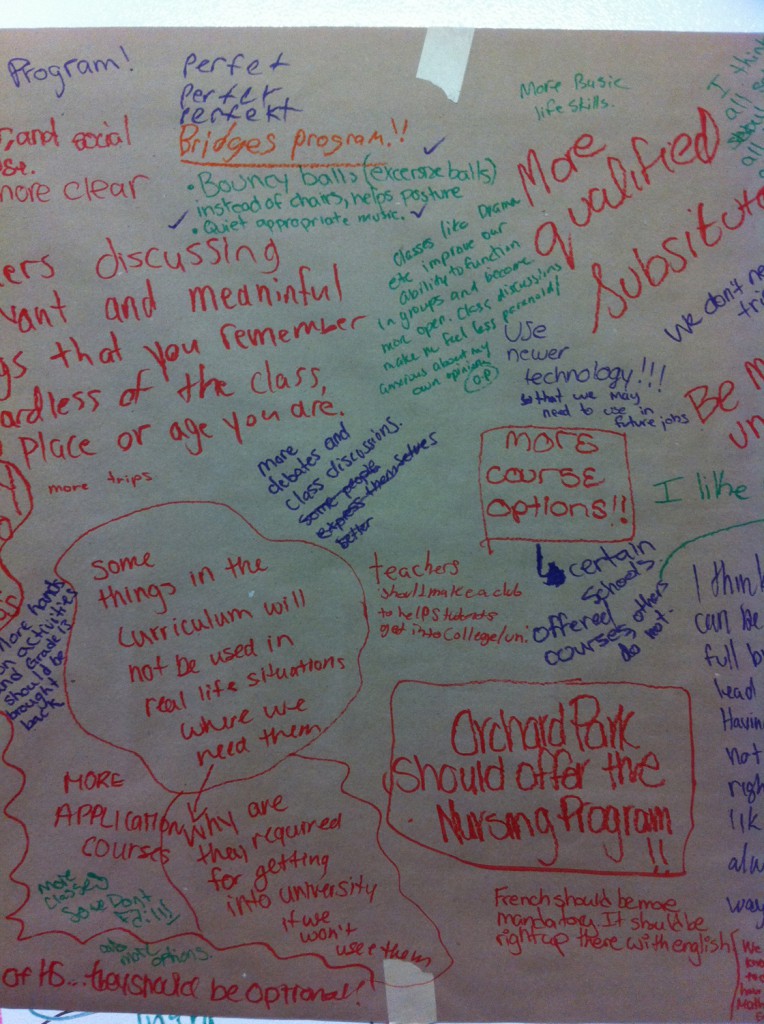 Program!
perfet
perfer
perfekt
Bridges program!!
• Bouncy balls (excersize balls)
instead of chairs, helps posture
• Quiet appropriate music.
More Basic
life skills.
I think
all
all
More
qualified
Subsitute
and social
more clear
discussing
and meaninful
that you remember
of the class,
place or age you are.
more trips
classes like Drama
etc improve our
ability to function
in groups and become
more open. Class discussions
make me feel less paranoid/
anxious about my
own opinions
O.P
we don't
USE
newer
technology!!!
so that we may
need to use in
future jobs.
Be
more
debates and
class discussions.
some people
express themselves
better
MORE
COURSE
OPTIONS!!
I like
certain
schools
offered
courses, others
do not.
teachers
should make a club
to help students
get into College/uni.
Some
things in the
curriculum will
not be used in
real life situations
where we
need them
more hands
on activities
and Grade 13
should be
brought
back
I think
can be
full
lead
Havin
not
righ
lik
alw
way
Orchard Park
Should offer the
Nursing Program
!!
MORE
APPLICATION
COURSES
Why are
they required
for getting
into university
if we
won't
use them
more
classes
so we Dont
Fail!!!
more options.
French should be more
mandatory. It should be
right up there with english
We
Math
of HS... they should be optional!